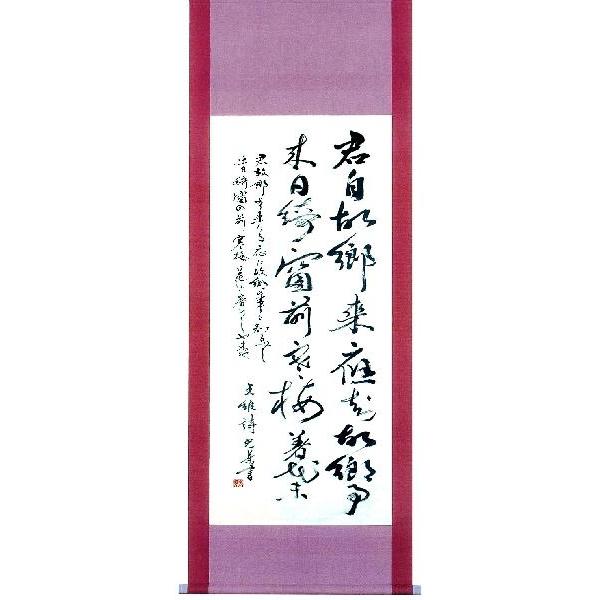 君自故鄉来應知故鄉事
来日綺窗前寒梅着花未
君故郷より来たる応に故郷の事を知るべし
来日綺窓の前寒梅花を着
王維詩 書